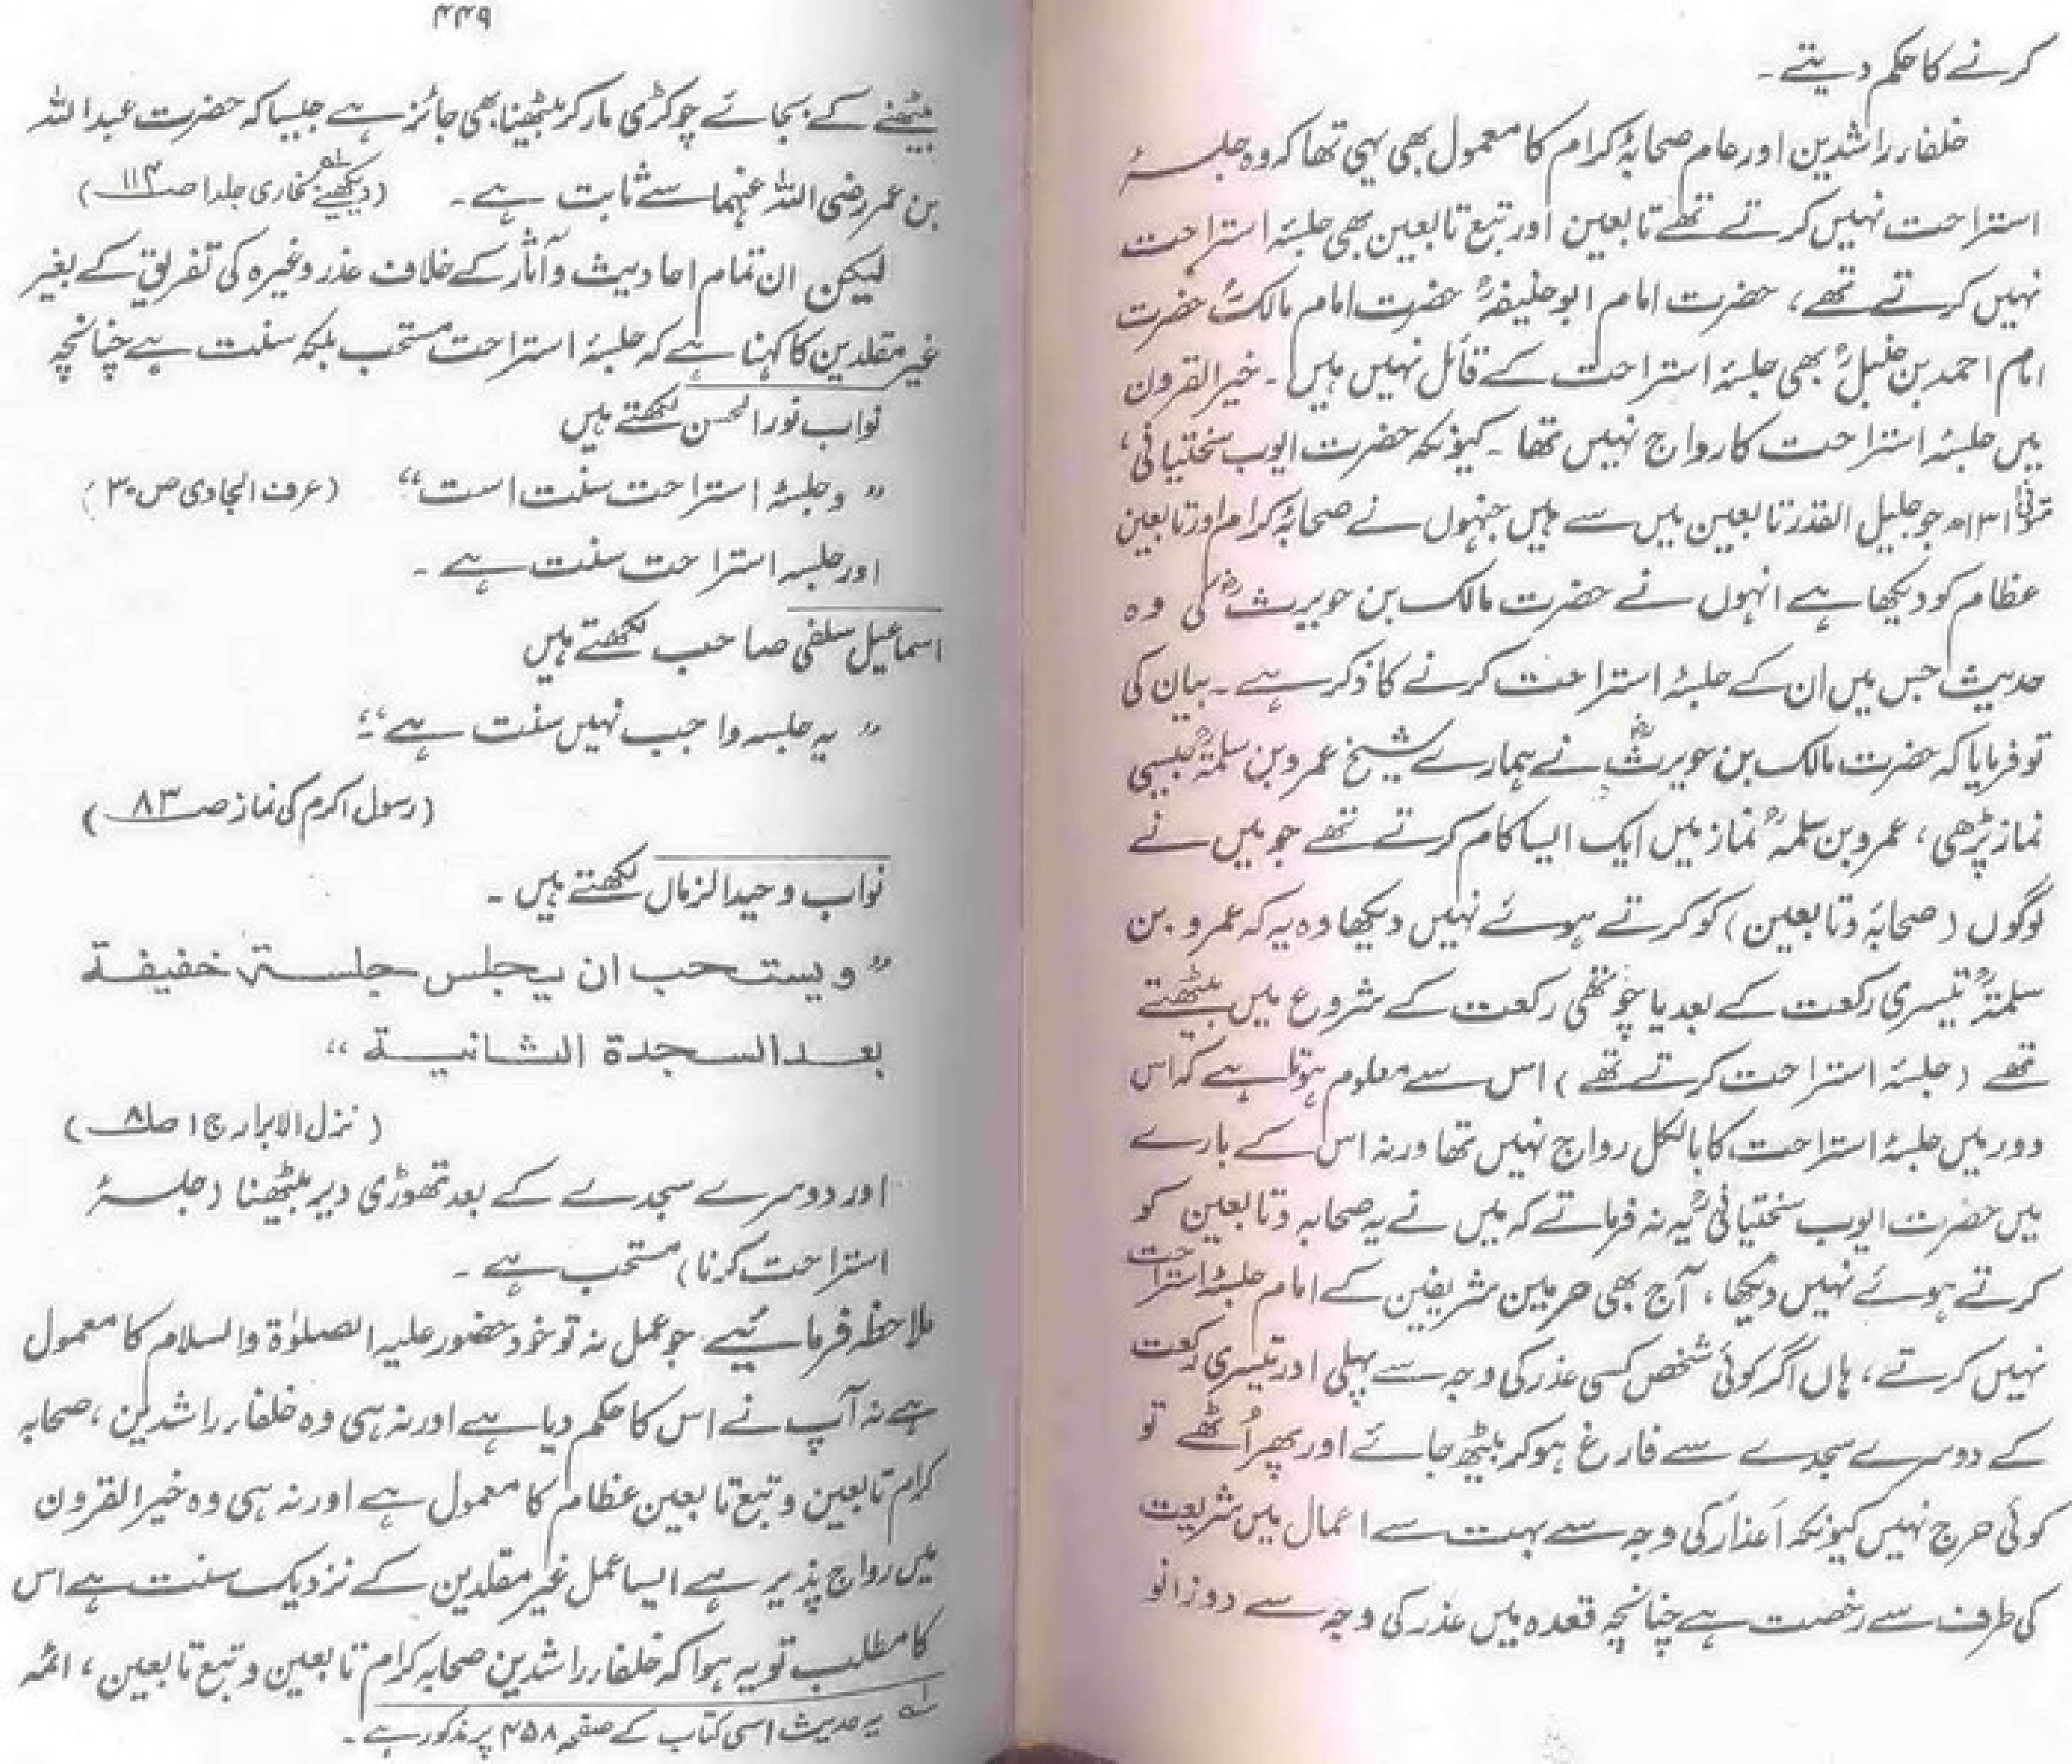 کرنے کا حکم دیتے۔
خلفاء راشدین اور عام صحابہؓ کرام کا معمول بھی یہی تھا کہ وہ جلسۂ
استراحت نہیں کرتے تھے تابعین اور تبع تابعین بھی جلسۂ استراحت
نہیں کرتے تھے، حضرت امام ابوحنیفہؒ حضرت امام مالکؒ حضرت
امام احمد بن حنبلؒ بھی جلسۂ استراحت کے قائل نہیں ہیں۔ خیرالقرون
میں جلسۂ استراحت کا رواج نہیں تھا۔ کیونکہ حضرت ایوب سختیانیؒ
متوفیٰ ۱۳۱ھ جو جلیل القدر تابعین میں سے ہیں جنہوں نے صحابہؓ کرام اور تابعین
عظام کو دیکھا ہے انہوں نے حضرت مالک بن حویرثؓ کی وہ
حدیث جس میں ان کے جلسۂ استراحت کرنے کا ذکر ہے۔ بیان کی
تو فرمایا کہ حضرت مالک بن حویرثؓ نے ہمارے شیخ عمرو بن سلمہؒ جیسی
نماز پڑھی، عمرو بن سلمہؒ نماز میں ایک ایسا کام کرتے تھے جو میں نے
لوگوں (صحابہؓ وتابعین) کو کرتے ہوئے نہیں دیکھا وہ یہ کہ عمرو بن
سلمۃؒ تیسری رکعت کے بعد یا چوتھی رکعت کے شروع میں بیٹھتے
تھے (جلسۂ استراحت کرتے تھے) اس سے معلوم ہوتا ہے کہ اس
دور میں جلسۂ استراحت کا بالکل رواج نہیں تھا ورنہ اس کے بارے
میں حضرت ایوب سختیانیؒ یہ نہ فرماتے کہ میں نے یہ صحابہ وتابعین کو
کرتے ہوئے نہیں دیکھا، آج بھی حرمین شریفین کے امام جلسۂ استراحت
نہیں کرتے، ہاں اگر کوئی شخص کسی عذر کی وجہ سے پہلی اور تیسری رکعت
کے دوسرے سجدے سے فارغ ہوکر بیٹھ جائے اور پھر اُٹھے تو
کوئی حرج نہیں کیونکہ اَعذار کی وجہ سے بہت سے اعمال میں شریعت
کی طرف سے رخصت ہے چنانچہ قعدہ میں عذر کی وجہ سے دوزانو
۴۴۹
بیٹھنے کے بجائے چوکڑی مار کر بیٹھنا بھی جائز ہے جیسا کہ حضرت عبداللہ
بن عمر رضی اللہ عنہما سے ثابت ہے۔ (دیکھئے بخاری جلد ۱ صـ ۱۱۴)
لیکن ان تمام احادیث وآثار کے خلاف عذر وغیرہ کی تفریق کے بغیر
غیر مقلدین کا کہنا ہے کہ جلسۂ استراحت مستحب بلکہ سنت ہے چنانچہ
نواب نورالحسن لکھتے ہیں
”وجلسۂ استراحت سنت است“ (عرف الجادی ص ۳۰)
اور جلسہ استراحت سنت ہے۔
اسماعیل سلفی صاحب لکھتے ہیں
”یہ جلسہ واجب نہیں سنت ہے“
(رسول اکرم کی نماز صـ ۸۳)
نواب وحیدالزماں لکھتے ہیں۔
”ویستحب ان یجلس جلسۃ خفیفۃ
بعد السجدة الثانیۃ“
(نزل الابرار ج ۱ صـ ۸)
اور دوسرے سجدے کے بعد تھوڑی دیر بیٹھنا (جلسۂ
استراحت کرنا) مستحب ہے۔
ملاحظہ فرمائیے جو عمل نہ تو خود حضور علیہ الصلوٰۃ والسلام کا معمول
ہے نہ آپ نے اس کا حکم دیا ہے اور نہ ہی وہ خلفاء راشدین، صحابہ
کرام تابعین وتبع تابعین عظام کا معمول ہے اور نہ ہی وہ خیرالقرون
میں رواج پذیر ہے ایسا عمل غیر مقلدین کے نزدیک سنت ہے اس
کا مطلب تو یہ ہوا کہ خلفاء راشدین صحابہ کرام تابعین وتبع تابعین، ائمہ
لہ یہ حدیث اسی کتاب کے صفحہ ۴۵۸ پر مذکور ہے۔